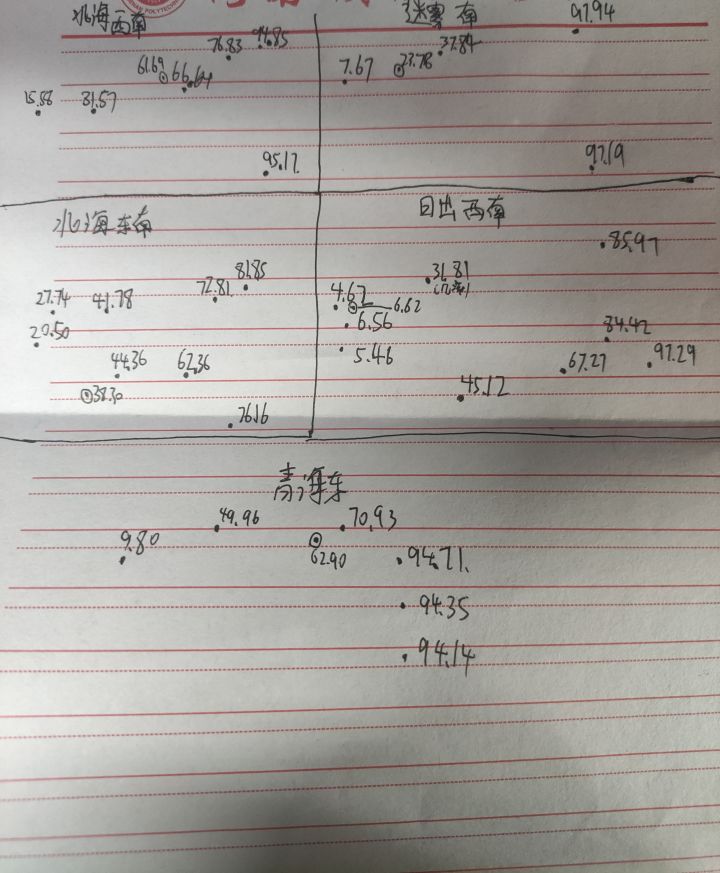 冰海西南
76.83
94.85
61.69
66.64
15.58
31.57
95.17
迷雾南
97.94
37.84
7.67
23.78
97.19
冰海东南
81.85
72.81
27.74
41.78
20.50
44.36
62.36
38.30
76.16
日出西南
85.97
31.81
4.62
6.62
6.56
5.46
84.42
67.27
97.29
45.12
青海东
49.96
70.93
9.80
62.90
94.71
94.35
94.14